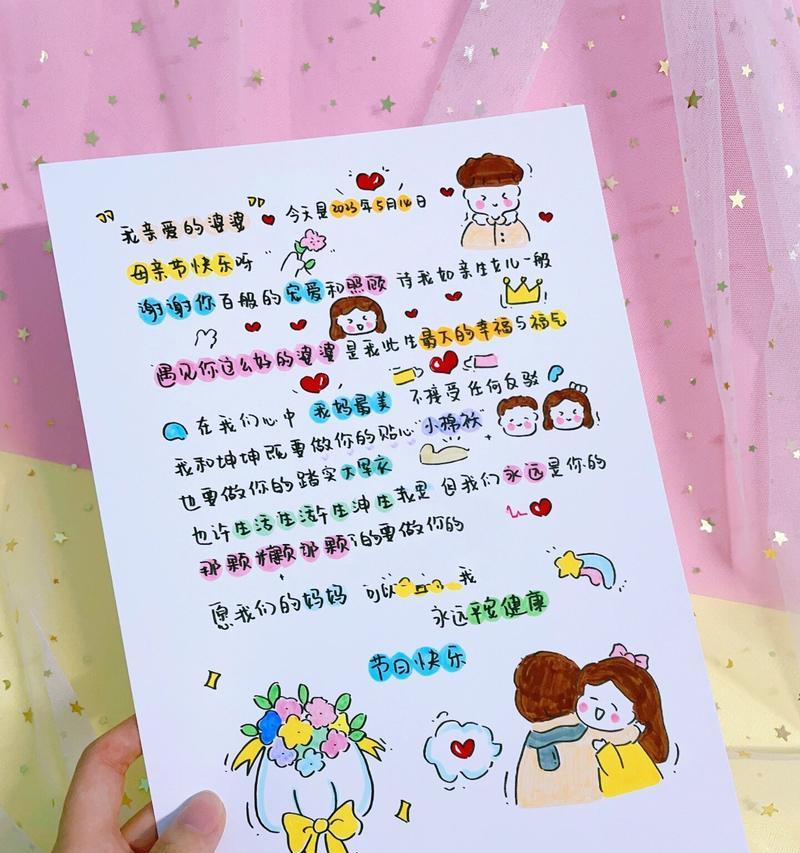 我亲爱的婆婆 今天是2023年5月14日
母亲节快乐呀
谢谢你百般的宠爱和照顾 待我如亲生女儿一般
遇见你这么好的婆婆是我此生最大的幸福与福气
在我们心中 我妈最美 不接受任何反驳
我和坤坤既要做你的贴心"小棉袄"
也要做你的踏实大
也许生活 但我们永远是你的
那颗 那颗 的要做你的
愿我们的妈妈 可以 我
永远平安健康
节日快乐